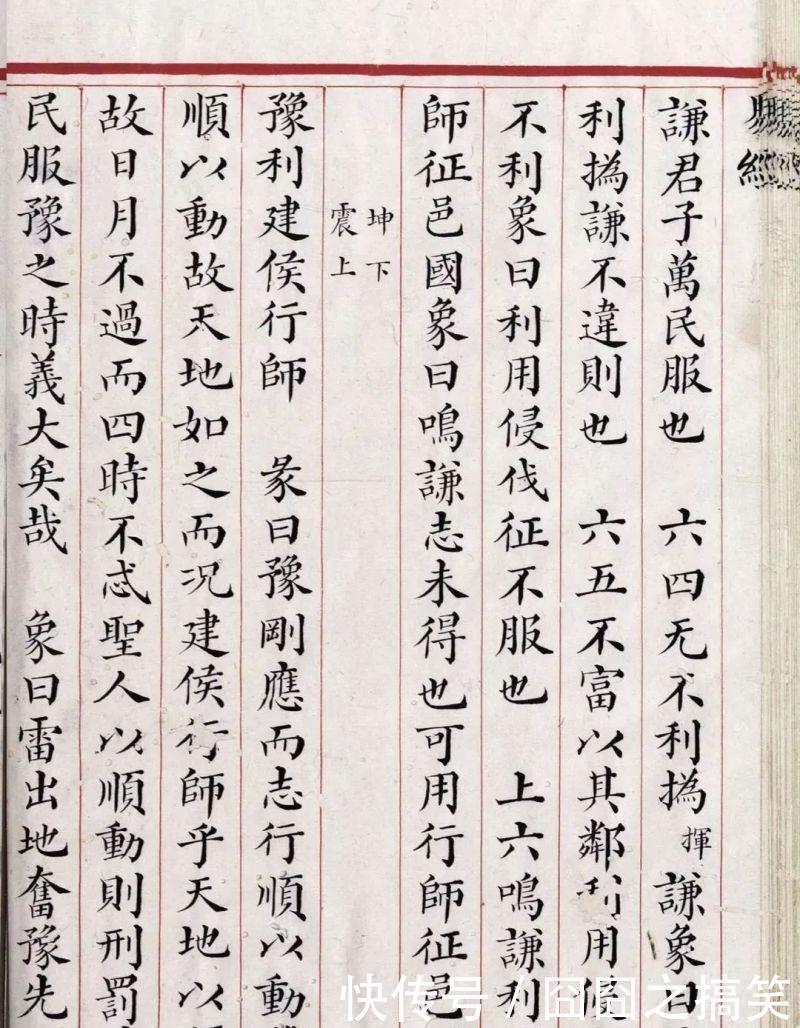 謙君子萬民服也 六四无不利撝揮謙象曰
利撝謙不違則也 六五不富以其鄰利用侵
不利象曰利用侵伐征不服也 上六鳴謙利
師征邑國象曰鳴謙志未得也可用行師征邑
坤下
震上
豫利建侯行師 彖曰豫剛應而志行順以動
順以動故天地如之而况建侯行師乎天地以
故日月不過而四時不忒聖人以順動則刑罰
民服豫之時義大矣哉 象曰雷出地奮豫先
快传号 / 囧囧之搞笑